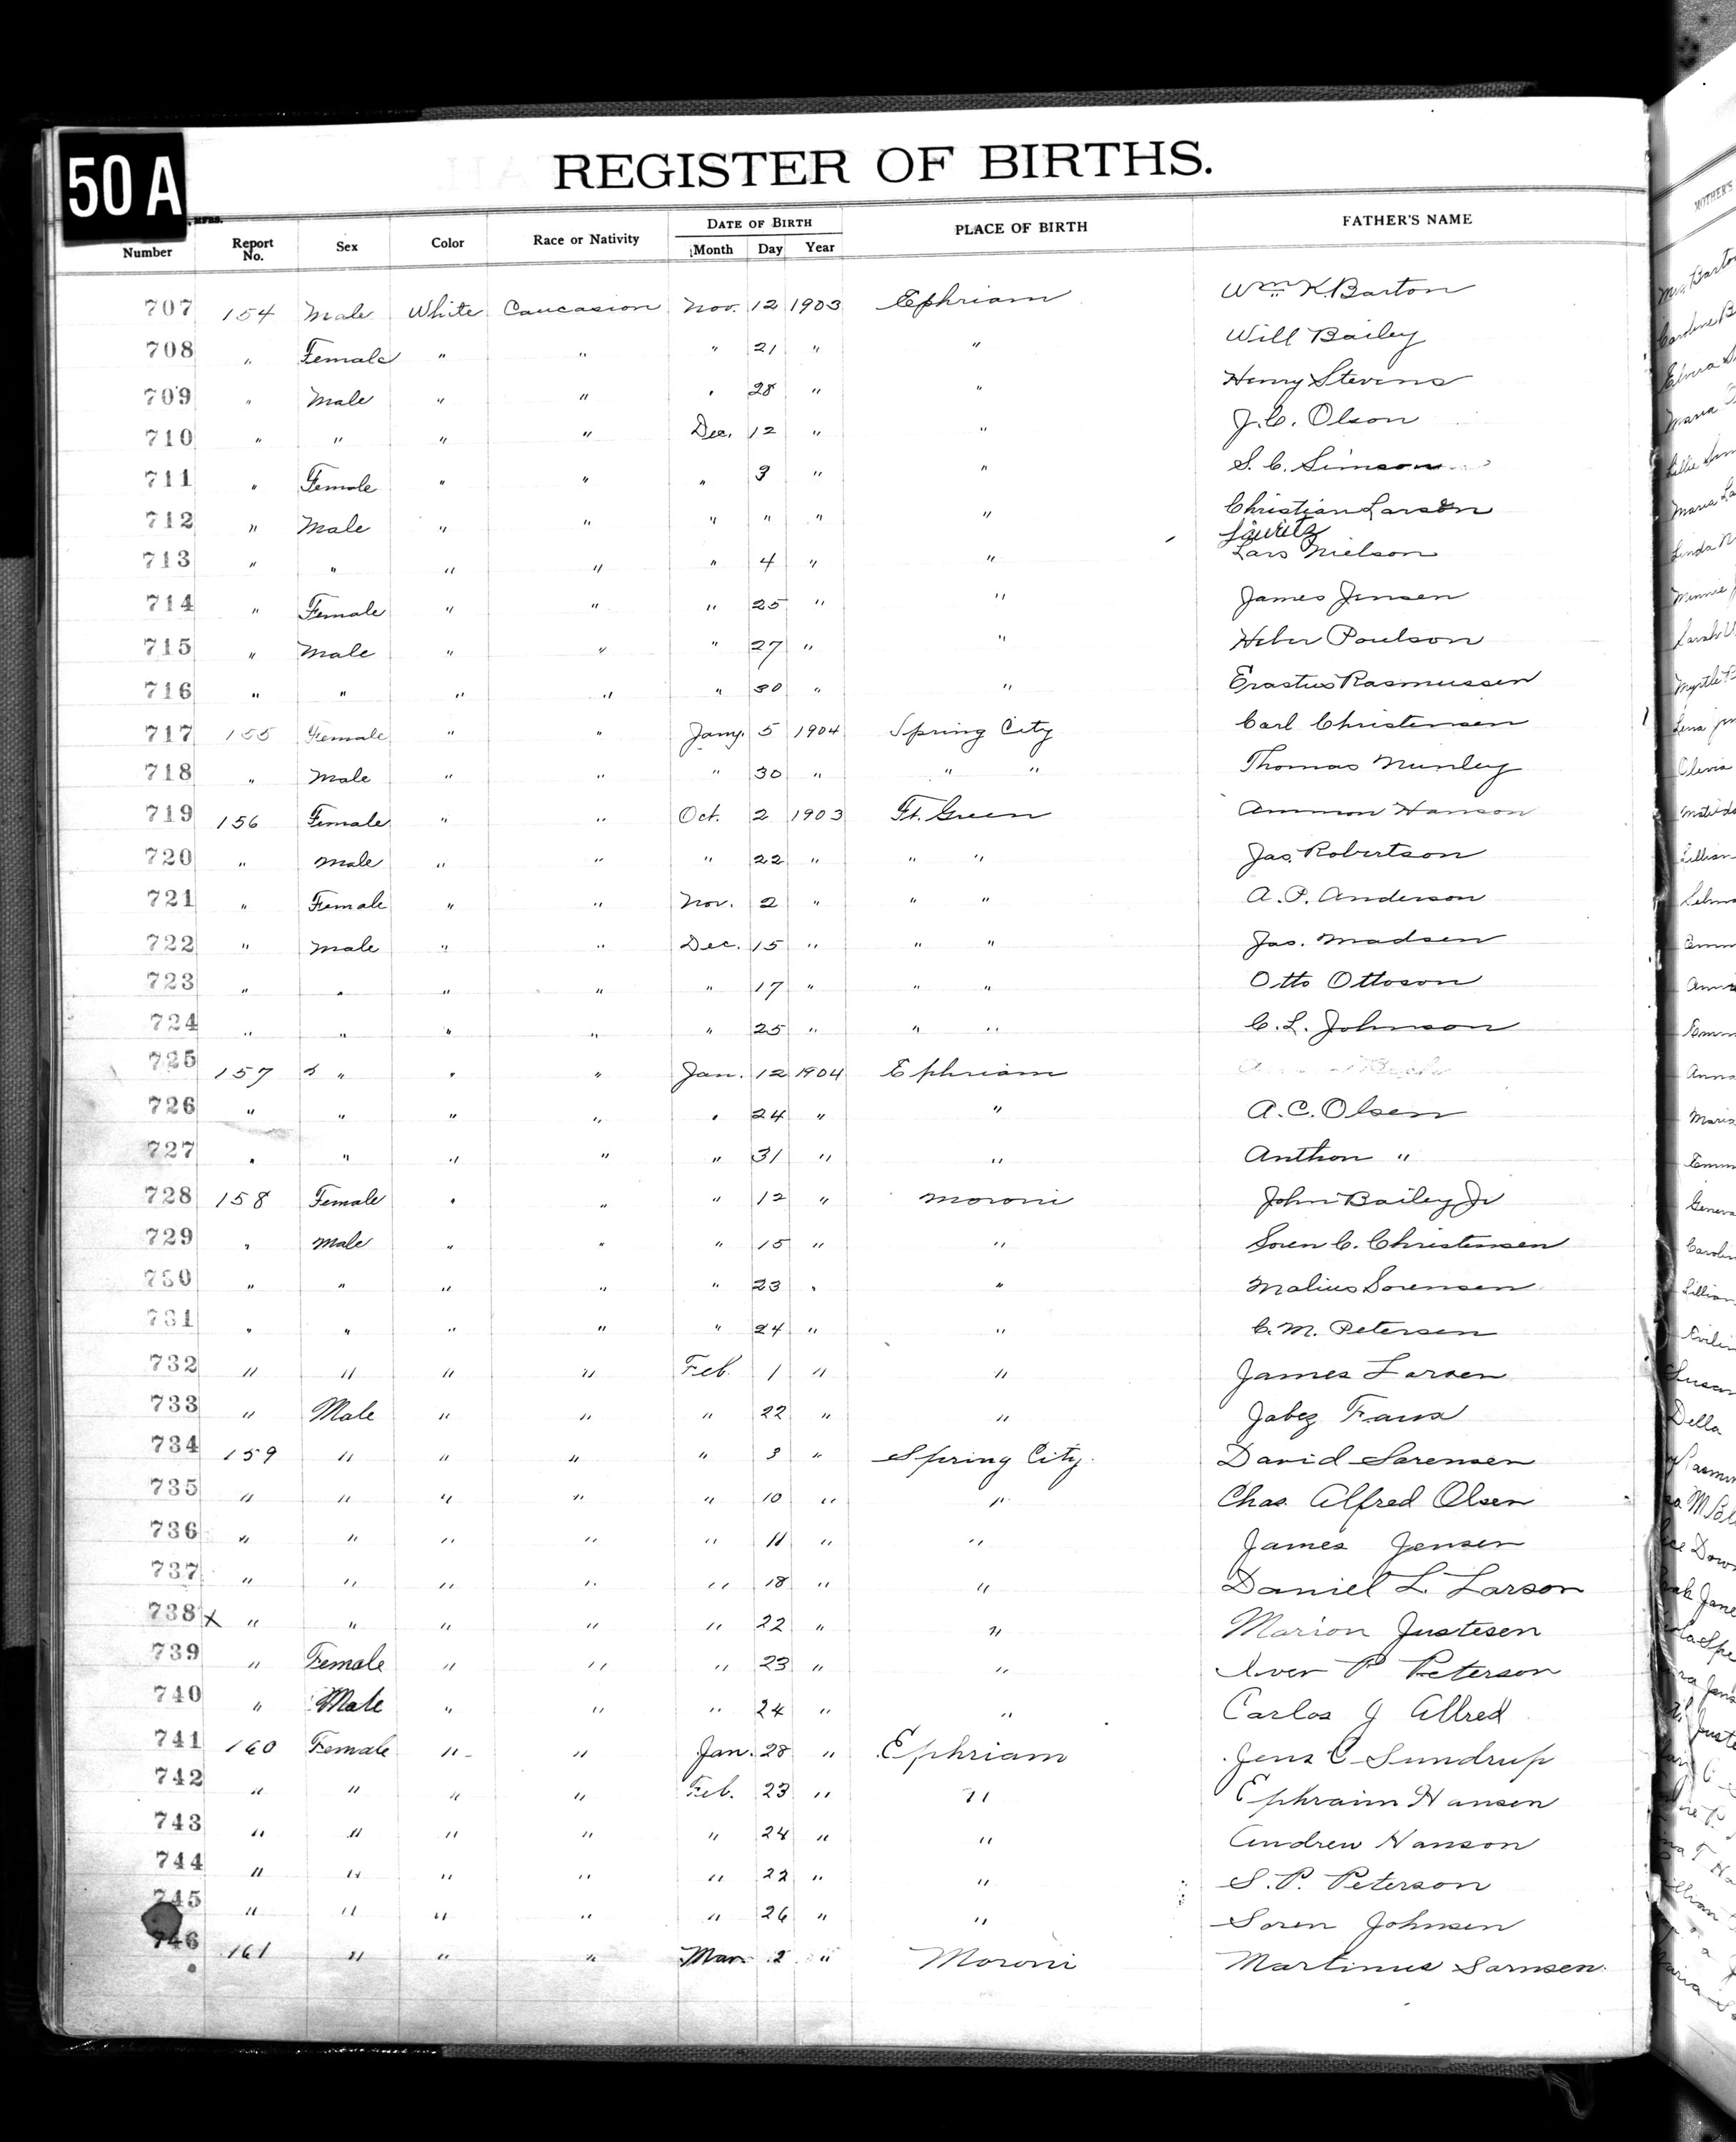 50 A
REGISTER OF BIRTHS.
Number Report No. Sex Color Race or Nativity DATE OF BIRTH Month Day Year PLACE OF BIRTH FATHER'S NAME
707 154 Male White Caucasion Nov. 12 1903 Ephriam Wm. K. Barton
708 " Female " " " 21 " " Will Bailey
709 " Male " " " 28 " " Henry Stevens
710 " " " " Dec. 12 " " J. C. Olson
711 " Female " " " 3 " " S. C. Simson
712 " Male " " " " " " Christian Larson
Lauritz
713 " " " " " 4 " " Lars Nielson
714 " Female " " " 25 " " James Jensen
715 " Male " " " 27 " " Heber Poulson
716 " " " " " 30 " " Erastus Rasmussen
717 155 Female " " Jany. 5 1904 Spring City Carl Christensen
718 " Male " " " 30 " " " Thomas Nunley
719 156 Female " " Oct. 2 1903 Ft. Green Ammon Hanson
720 " Male " " " 22 " " " Jas. Robertson
721 " Female " " Nov. 2 " " " A. P. Anderson
722 " Male " " Dec. 15 " " " Jas. Madsen
723 " " " " " 17 " " " Otto Ottoson
724 " " " " " 25 " " " C. L. Johnson
725 157 " " " Jan. 12 1904 Ephriam
726 " " " " " 24 " " A. C. Olsen
727 " " " " " 31 " " Anthon "
728 158 Female " " " 12 " Moroni John Bailey Jr
729 " Male " " " 15 " " Soren C. Christensen
730 " " " " " 23 " " Malius Sorensen
731 " " " " " 24 " " C. M. Petersen
732 " " " " Feb. 1 " " James Larsen
733 " Male " " " 22 " " Jabez Faux
734 159 " " " " 3 " Spring City. David Sorensen
735 " " " " " 10 " " Chas. Alfred Olsen
736 " " " " " 11 " " James Jensen
737 " " " " " 18 " " Daniel L. Larson
738 x " " " " " 22 " " Marion Justesen
739 " Female " " " 23 " " Iver P Peterson
740 " Male " " " 24 " " Carlos J Allred
741 160 Female " " Jan. 28 " Ephriam Jens C Sundrup
742 " " " " Feb. 23 " " Ephraim Hansen
743 " " " " " 24 " " Andrew Hanson
744 " " " " " 22 " " S. P. Peterson
745 " " " " " 26 " " Soren Johnsen
746 161 " " " Mar. 2 " Moroni Martinus Sornsen